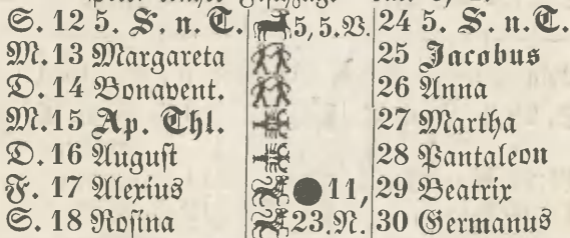 S. 12 5. S. n. T. 5, 5.V. 24 5. S. n. T.
M. 13 Margareta 25 Jacobus
D. 14 Bonavent. 26 Anna
M. 15 Ap. Thl. 27 Martha
D. 16 August 28 Pantaleon
F. 17 Alexius ● 11, 29 Beatrix
S. 18 Rosina 23.N. 30 Germanus